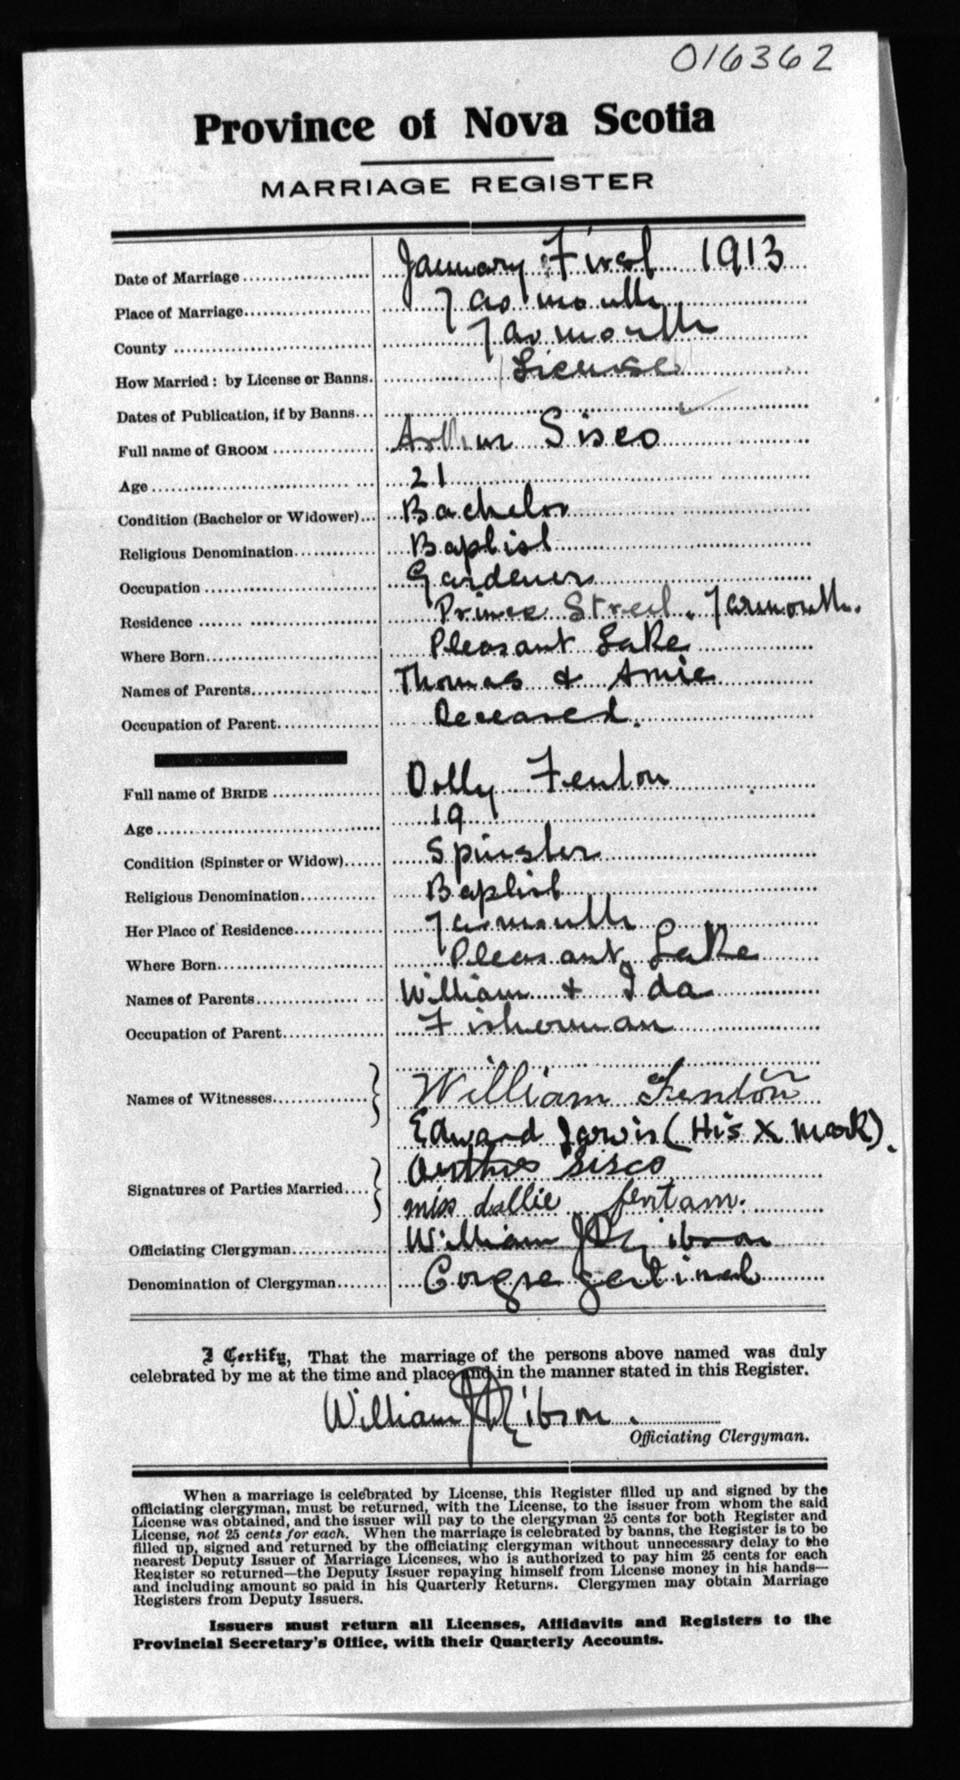 016362
Province of Nova Scotia
MARRIAGE REGISTER
Date of Marriage January First 1913
Place of Marriage Yarmouth
County Yarmouth
How Married: by License or Banns. License
Dates of Publication, if by Banns
Full name of GROOM Arthur Sisco
Age 21
Condition (Bachelor or Widower) Bachelor
Religious Denomination Baptist
Occupation Gardener
Residence Prince Street. Yarmouth.
Where Born Pleasant Lake
Names of Parents Thomas & Annie
Occupation of Parent Deceased.
Full name of BRIDE Dolly Fenton
Age 19
Condition (Spinster or Widow) Spinster
Religious Denomination Baptist
Her Place of Residence Yarmouth
Where Born Pleasant Lake
Names of Parents William & Ida
Occupation of Parent Fisherman
Names of Witnesses William Fenton
Edward Jarvis (His X Mark).
Signatures of Parties Married Arthur Sisco
miss dollie fentam.
Officiating Clergyman William Gibson
Denomination of Clergyman Congregational
I Certify, That the marriage of the persons above named was duly
celebrated by me at the time and place and in the manner stated in this Register.
William Gibson.
Officiating Clergyman.
When a marriage is celebrated by License, this Register filled up and signed by the
officiating clergyman, must be returned, with the License, to the issuer from whom the said
License was obtained, and the issuer will pay to the clergyman 25 cents for both Register and
License, not 25 cents for each. When the marriage is celebrated by banns, the Register is to be
filled up, signed and returned by the officiating clergyman without unnecessary delay to the
nearest Deputy Issuer of Marriage Licenses, who is authorized to pay him 25 cents for each
Register so returned—the Deputy Issuer repaying himself from License money in his hands—
and including amount so paid in his Quarterly Returns. Clergymen may obtain Marriage
Registers from Deputy Issuers.
Issuers must return all Licenses, Affidavits and Registers to the
Provincial Secretary's Office, with their Quarterly Accounts.